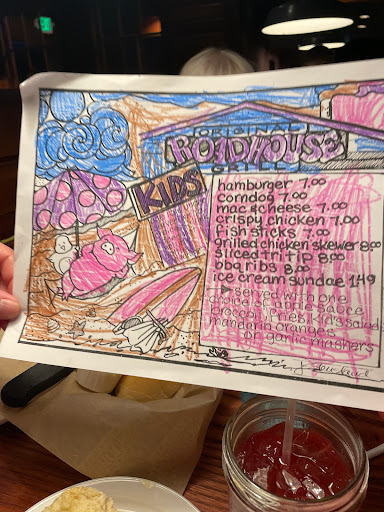 ORIGINAL
ROADHOUSE
GRILL
KIDS
hamburger 7.00
corndog 7.00
mac & cheese 7.00
crispy chicken 7.00
fish sticks 7.00
grilled chicken skewer 8.00
sliced tri tip 8.00
bbq ribs 8.00
ice cream sundae 1.49
served with one
choice: apple sauce
broccoli, fries, kid's salad
mandarin oranges
or garlic mashers